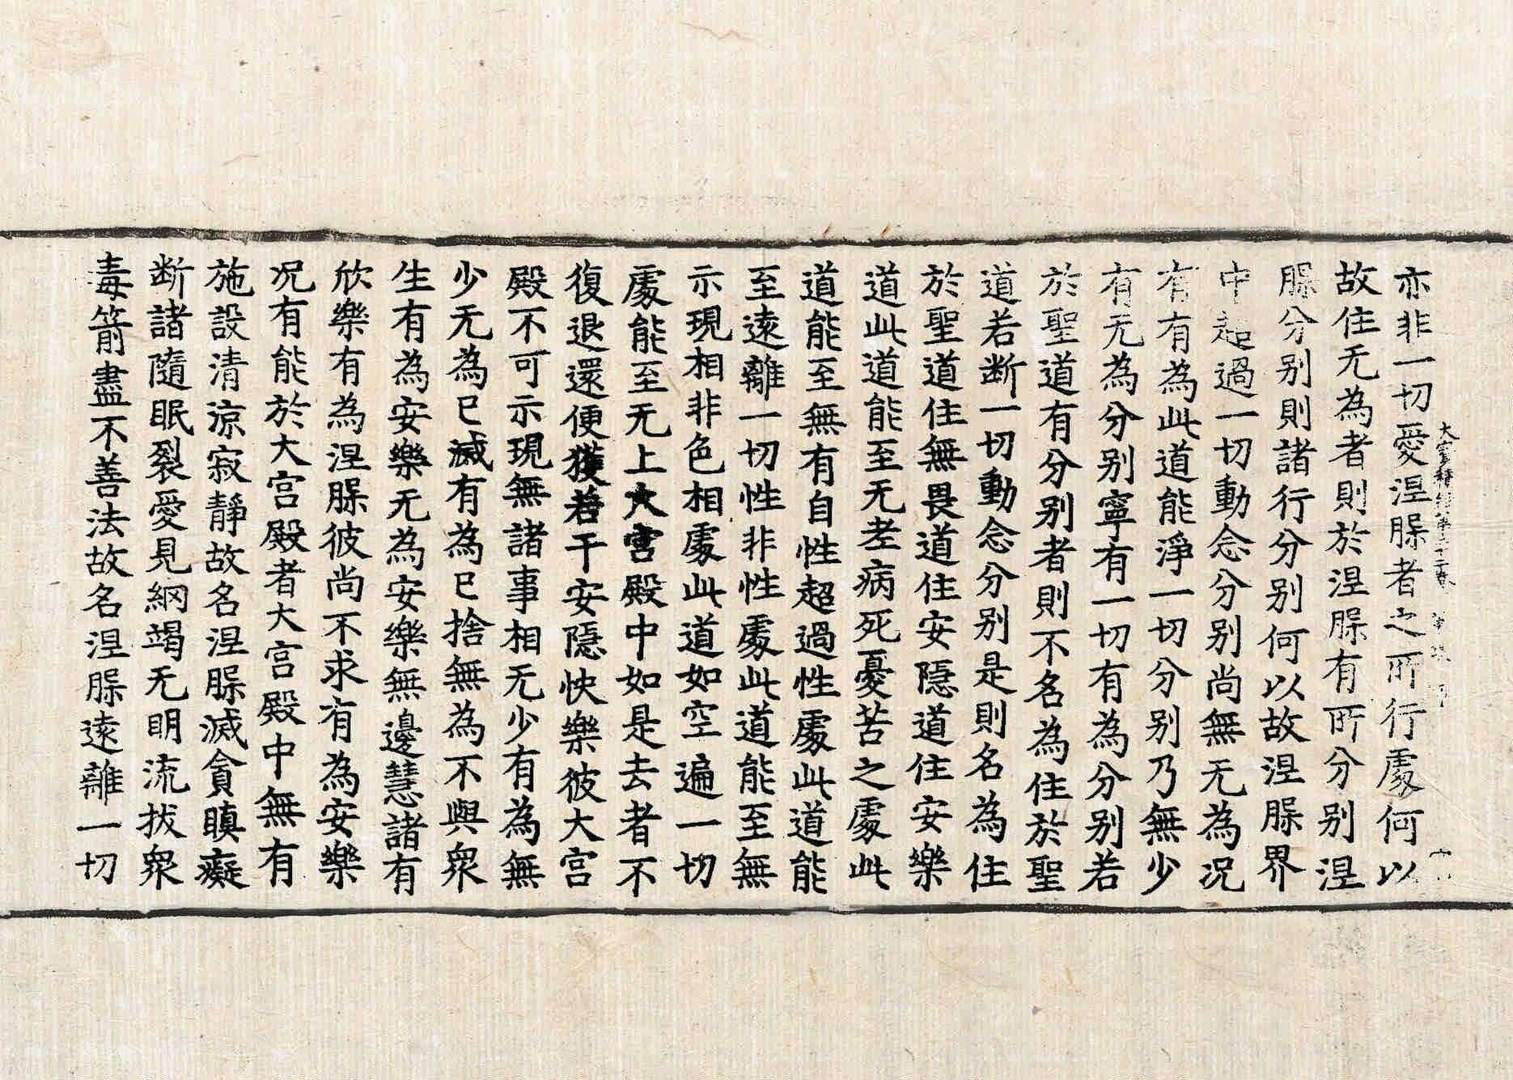 大寳積經第二十二卷
亦非一切愛涅槃者之所行處何以
故住无為者則於涅槃有所分别涅
槃分别則諸行分别何以故涅槃界
中超過一切動念分别尚無无為况
有有為此道能淨一切分别乃無少
有无為分别寧有一切有為分别若
於聖道有分别者則不名為住於聖
道若断一切動念分别是則名為住
於聖道住無畏道住安隱道住安樂
道此道能至无老病死憂苦之處此
道能至無有自性超過性處此道能
至遠離一切性非性處此道能至無
示現相非色相處此道如空遍一切
處能至无上大宫殿中如是去者不
復退還便獲若干安隱快樂彼大宫
殿不可示現無諸事相无少有為無
少无為已滅有為已捨無為不與衆
生有為安樂无為安樂無邊慧諸有
欣樂有為涅槃彼尚不求有為安樂
况有能於大宫殿者大宫殿中無有
施設清涼寂静故名涅槃滅貪瞋癡
断諸隨眠裂愛見網竭无明流拔衆
毒箭盡不善法故名涅槃遠離一切